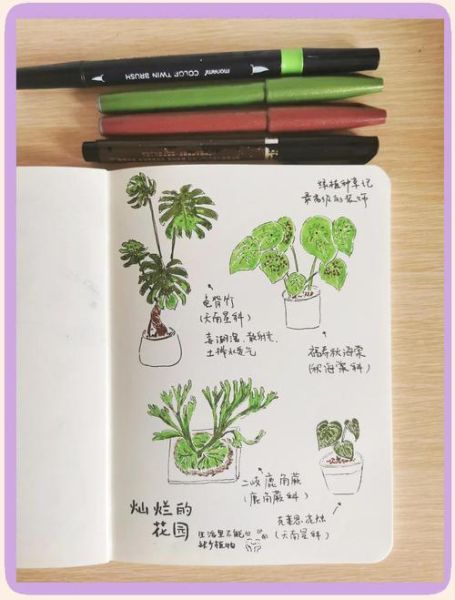 monami COLOR TWIN BRUSH
绿植种草记
最高级的装饰
龟背竹
(天南星科)
喜潮湿、散射光
土排水透气
福寿秋海棠
(秋海棠科)
二歧鹿角蕨
(鹿角蕨科)
克莱恩花烛
(天南星科)
灿烂的
花园
生活里不能
缺少植物